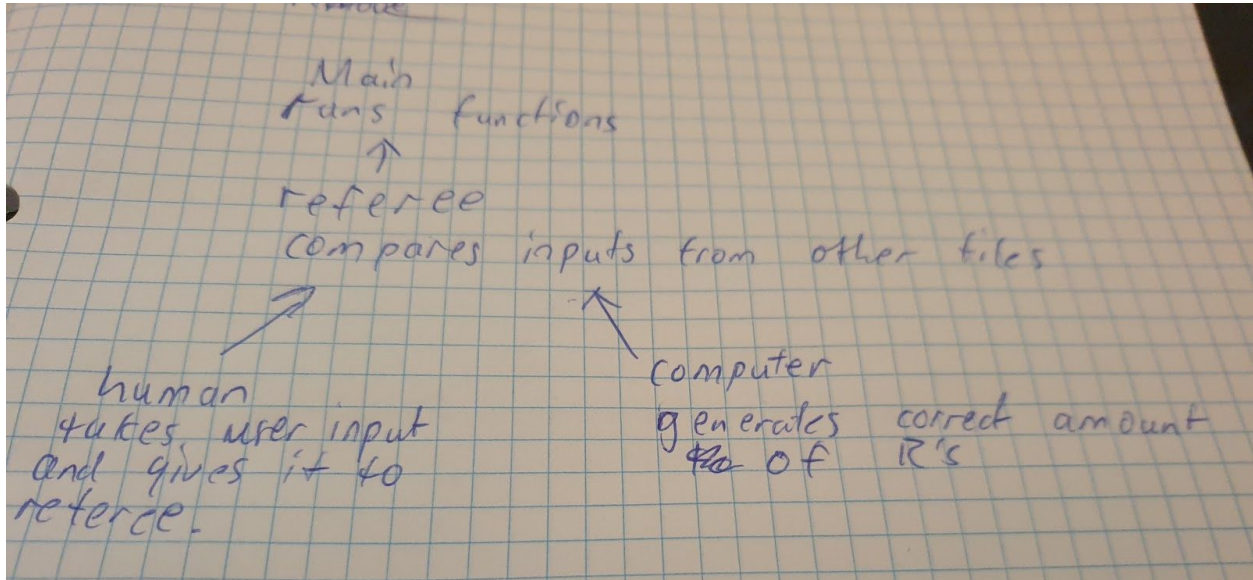 Main
runs functions
referee
compares inputs from other files
human
takes user input
and gives it to
referee.
computer
generates correct amount
of R's